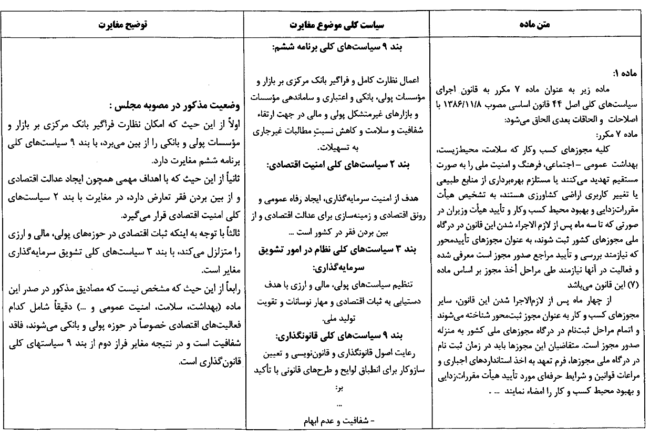 متن ماده
ماده ۱:
ماده زیر به عنوان ماده ۷ مکرر به قانون اجرای
سیاست‌های کلی اصل ۴۴ قانون اساسی مصوب ۱۳۸۶/۱۱/۸
اصلاحات و الحاقات بعدی الحاق می‌شود:
ماده ۷ مکرر:
کلیه مجوزهای کسب وکار که سلامت، محیط‌زیست،
بهداشت عمومی - اجتماعی، فرهنگ و امنیت ملی را به صورت
مستقیم تهدید می‌کنند یا مستلزم بهره‌برداری از منابع طبیعی
یا تغییر کاربری اراضی کشاورزی هستند، به تشخیص هیأت
مقررات‌زدایی و بهبود محیط کسب و کار و تأیید هیأت وزیران در
صورتی که تا سه ماه پس از لازم الاجراء شدن این قانون در درگاه
ملی مجوزهای کشور ثبت شوند، به عنوان مجوزهای تأییدمحور
که نیازمند بررسی و تأیید مراجع صدور مجوز است معرفی شده
و فعالیت در آنها نیازمند طی مراحل أخذ مجوز بر اساس ماده
(۷) این قانون می‌باشد
از چهار ماه پس از لازم‌الاجرا شدن این قانون، سایر
مجوزهای کسب و کار به عنوان مجوز ثبت‌محور شناخته می‌شوند
و اتمام مراحل ثبت‌نام در درگاه مجوزهای ملی کشور به منزله
صدور مجوز است. متقاضیان این مجوزها باید در زمان ثبت نام
در درگاه ملی مجوزها، فرم تعهد به اخذ استانداردهای اجباری و
مراعات قوانین و شرایط حرفه‌ای مورد تأیید هیأت مقررات‌زدایی
و بهبود محیط کسب و کار را امضاء نمایند ... .
سیاست کلی موضوع مغایرت
بند ۹ سیاست‌های کلی برنامه ششم:
اعمال نظارت کامل و فراگیر بانک مرکزی بر بازار و
مؤسسات پولی، بانکی و اعتباری و ساماندهی مؤسسات
و بازارهای غیرمتشکل پولی و مالی در جهت ارتقاء
شفافیت و سلامت و کاهش نسبت مطالبات غیرجاری
به تسهیلات.
بند ۲ سیاست‌های کلی امنیت اقتصادی:
هدف از امنیت سرمایه‌گذاری، ایجاد رفاه عمومی و
رونق اقتصادی و زمینه‌سازی برای عدالت اقتصادی و از
بین بردن فقر در کشور است ...
بند ۳ سیاست‌های کلی نظام در امور تشویق
سرمایه‌گذاری:
تنظیم سیاست‌های پولی، مالی و ارزی با هدف
دستیابی به ثبات اقتصادی و مهار نوسانات و تقویت
تولید ملی.
بند ۹ سیاست‌های کلی قانونگذاری:
رعایت اصول قانونگذاری و قانون‌نویسی و تعیین
سازوکار برای انطباق لوایح و طرح‌های قانونی با تأکید
بر:
...
- شفافیت و عدم ابهام
توضیح مغایرت
وضعیت مذکور در مصوبه مجلس :
اولاً از این حیث که امکان نظارت فراگیر بانک مرکزی بر بازار و
مؤسسات پولی و بانکی را از بین می‌برد، با بند ۹ سیاست‌های کلی
برنامه ششم مغایرت دارد.
ثانیاً از این حیث که با اهداف مهمی همچون ایجاد عدالت اقتصادی
و از بین بردن فقر تعارض دارد، در مغایرت با بند ۲ سیاست‌های
کلی امنیت اقتصادی قرار می‌گیرد.
ثالثاً با توجه به اینکه ثبات اقتصادی در حوزه‌های پولی، مالی و ارزی
را متزلزل می‌کند، با بند ۳ سیاست‌های کلی تشویق سرمایه‌گذاری
مغایر است.
رابعاً از این حیث که مشخص نیست که مصادیق مذکور در صدر این
ماده (بهداشت، سلامت، امنیت عمومی و ...) دقیقاً شامل کدام
فعالیت‌های اقتصادی خصوصاً در حوزه پولی و بانکی می‌شوند، فاقد
شفافیت است و در نتیجه مغایر فراز دوم از بند ۹ سیاستهای کلی
قانون‌گذاری است.